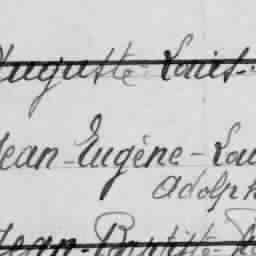 Auguste Louis.
Jean-Eugène-Lou
Adolph
Jean-Baptiste-